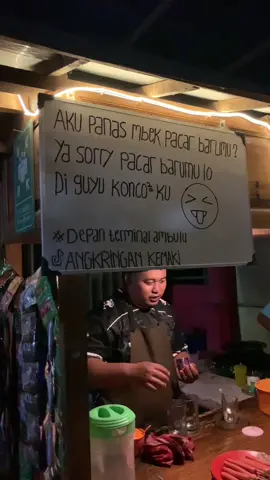 Aku panas mbek pacar barumu?
Ya sorry pacar barumu lo
Di guyu konco²ku
* Depan terminal ambulu
ANGKRINGAN KEMAKI